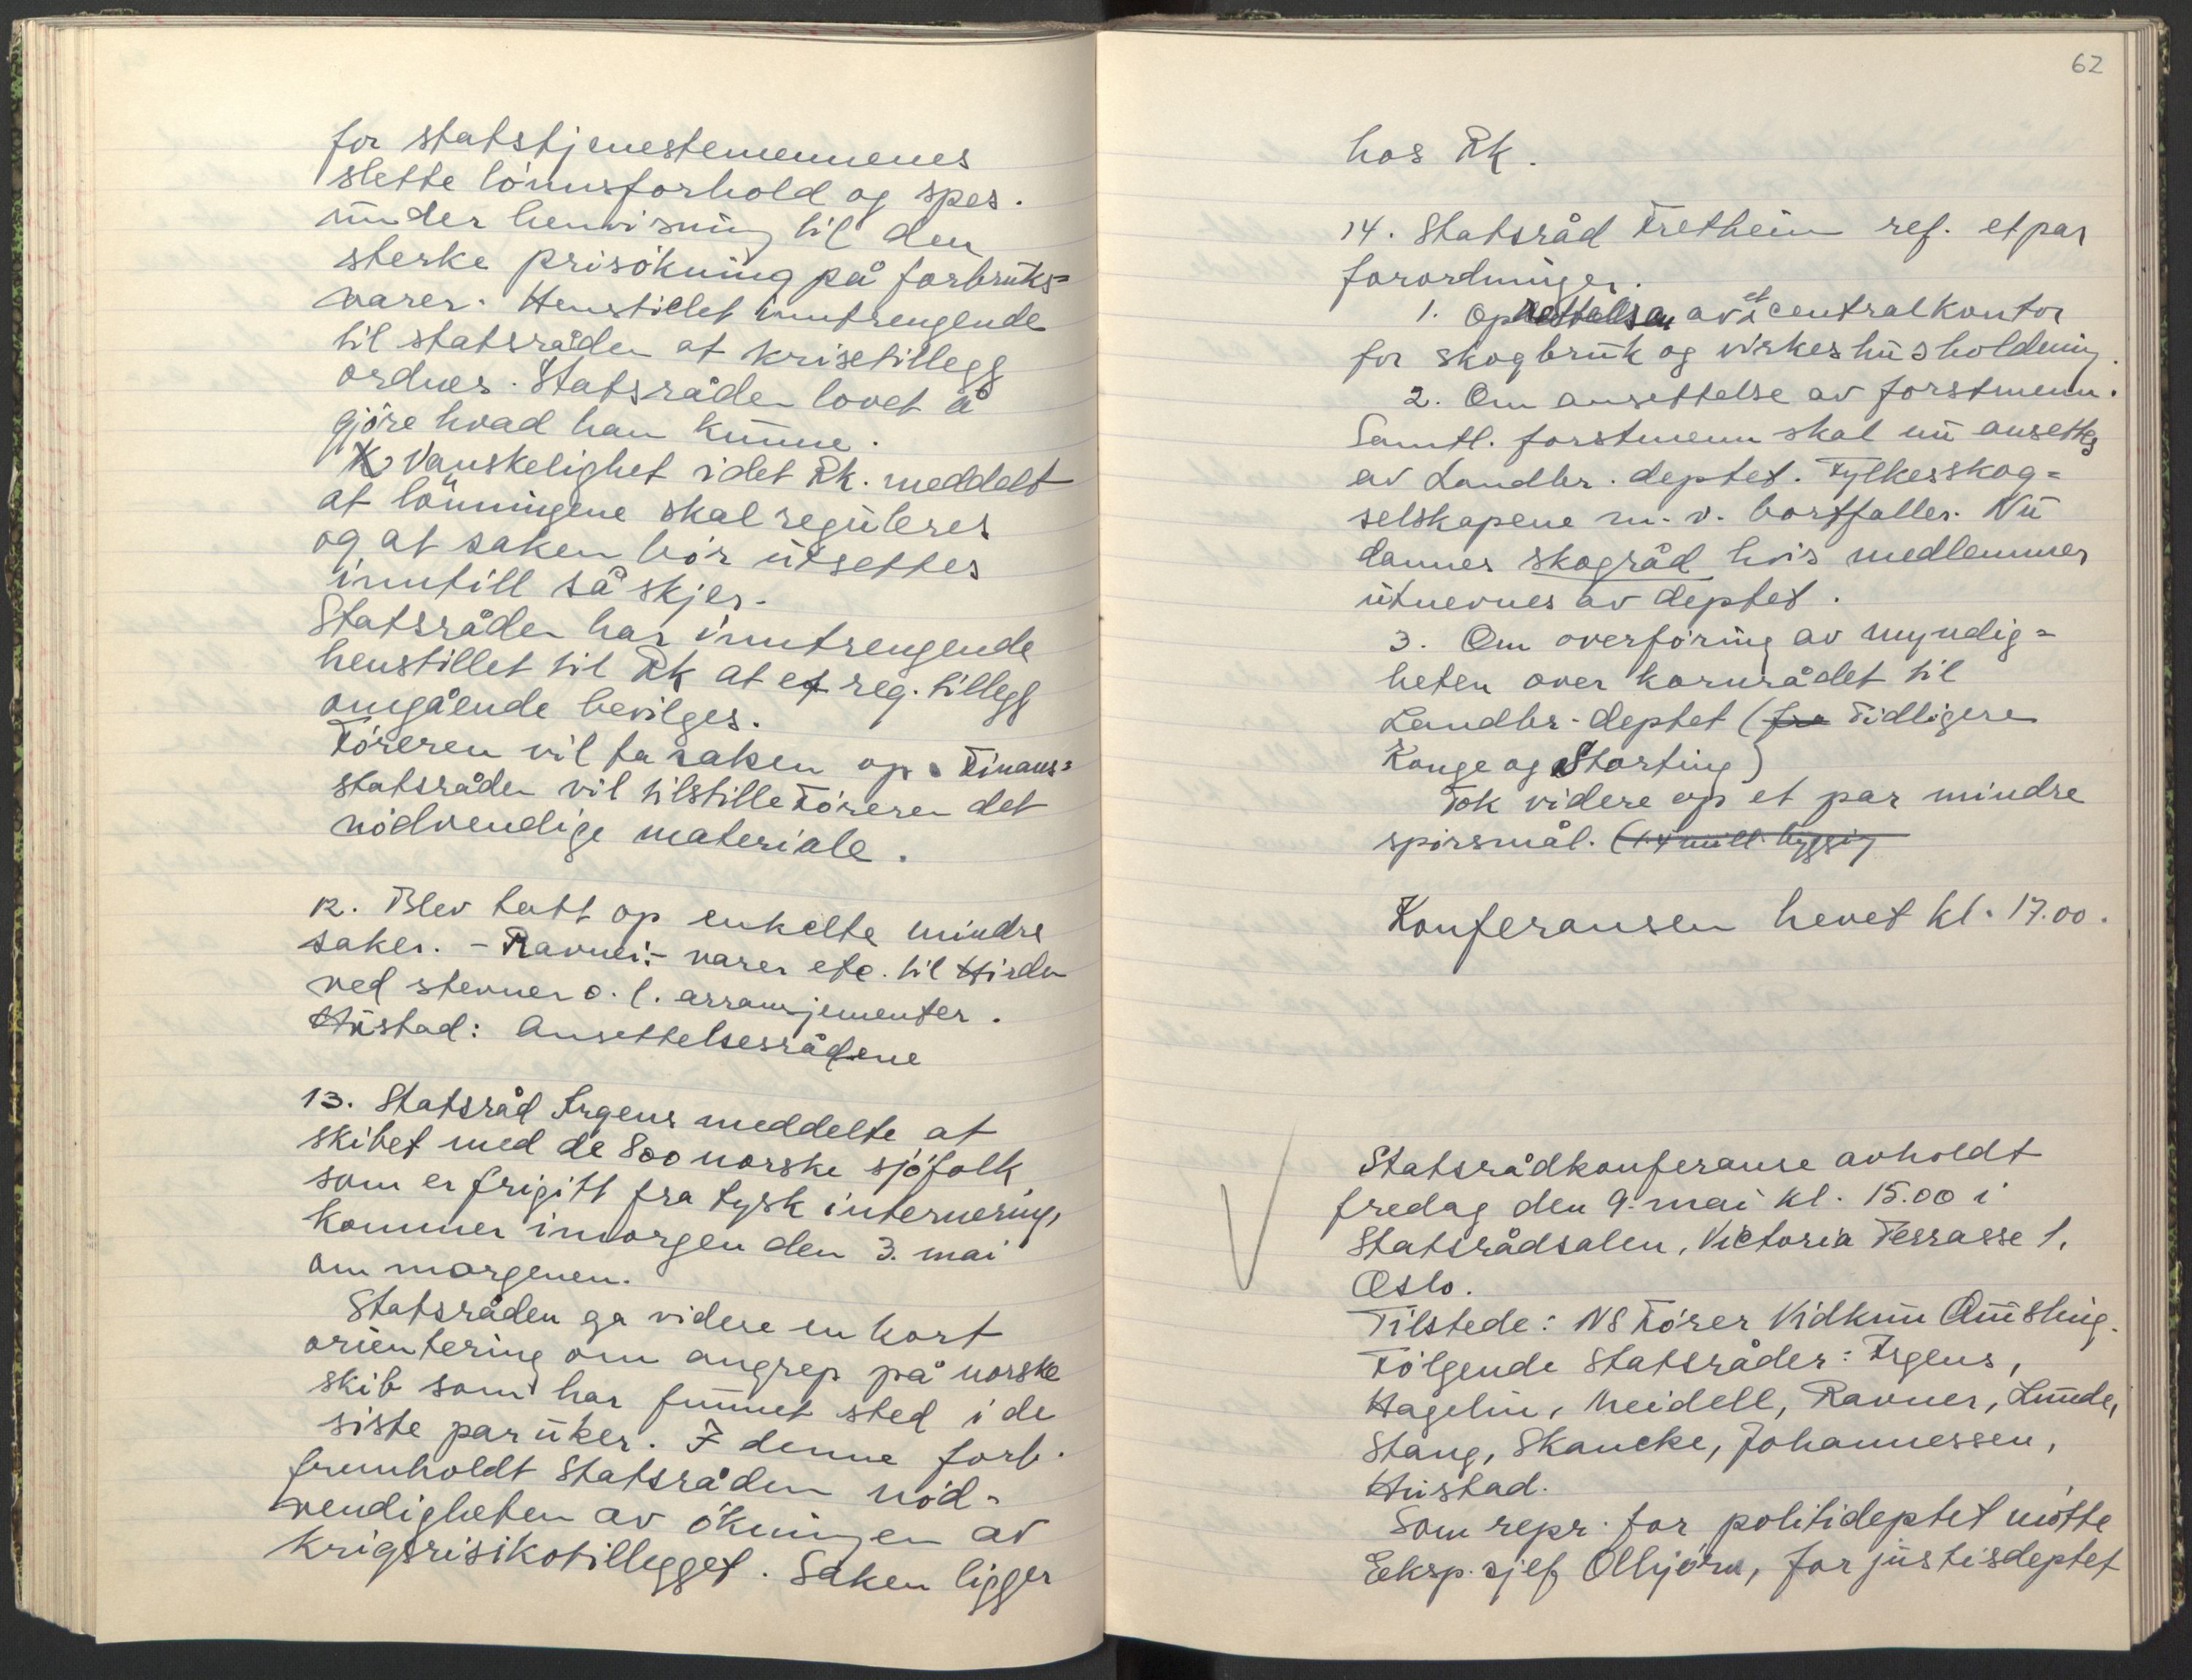 for statstjenestemennenes
slette lönnsforhold og spes.
under henvisning til den
sterke prisökning på forbruks=
varer. Henstillet inntrengende
til statsråden at krisetillegg
ordnes. Statsråden lovet å
gjöre hvad han kunne.
Vanskelighet idet Rk. meddelt
at lönningene skal reguleres
og at saken bör utsettes
inntill så skjer.
Statsråden har inntrengende
henstillet til Rk at et reg. tillegg
omgående bevilges.
Föreren vil ta saken op. Finans=
statsråden vil tilstille Föreren det
nödvendige materiale.
12. Blev tatt op enkelte mindre
saker. - Ravner: - varer etc. til Hirden
ved stevner o. l. arrangjementer.
Hustad: Ansettelsesrådene
13. Statsråd Irgens meddelte at
skibet med de 800 norske sjöfolk
som er frigitt fra tysk internering,
kommer imorgen den 3. mai
om morgenen.
Statsråden ga videre en kort
orientering om angrep på norske
skib som har funnet sted i de
siste par uker. I denne forb.
fremholdt Statsråden nöd-
vendigheten av ökningen av
krigsrisikotillegget. Saken ligger
62
hos Rk.
14. Statsråd Fretheim ref. et par
forordninger.
1. Oprettelsen av et centralkontor
for skogbruk og virkeshusholdning.
2. Om ansettelse av forstmenn.
Samtl. forstmenn skal nu ansettes
av Landbr. deptet. Fylkesskog=
selskapene m. v. bortfaller. Nu
dannes skogråd hvis medlemmer
utnevnes av deptet.
3. Om overföring av myndig=
heten over kornrådet til
Landbr. deptet (fra Tidligere
Konge og Storting)
Tok videre op et par mindre
spörsmål. (1.4 mill. bygging
Konferansen hevet kl. 17.00.
Statsrådkonferanse avholdt
fredag den 9. mai kl. 15.00 i
Statsrådsalen, Victoria Terrasse 1,
Oslo.
Tilstede: NS Förer Vidkun Quisling.
Fölgende statsråder: Irgens,
Hagelin, Meidell, Ravner, Lunde,
Stang, Skancke, Johannessen,
Hustad.
Som repr. for politideptet mötte
Eksp. sjef Olbjörn, for justisdeptet